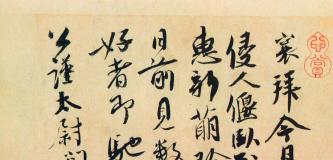 襄拜今日
侵人偃臥
惠新萠珍
日前見數
好者即馳
公謹太尉閣